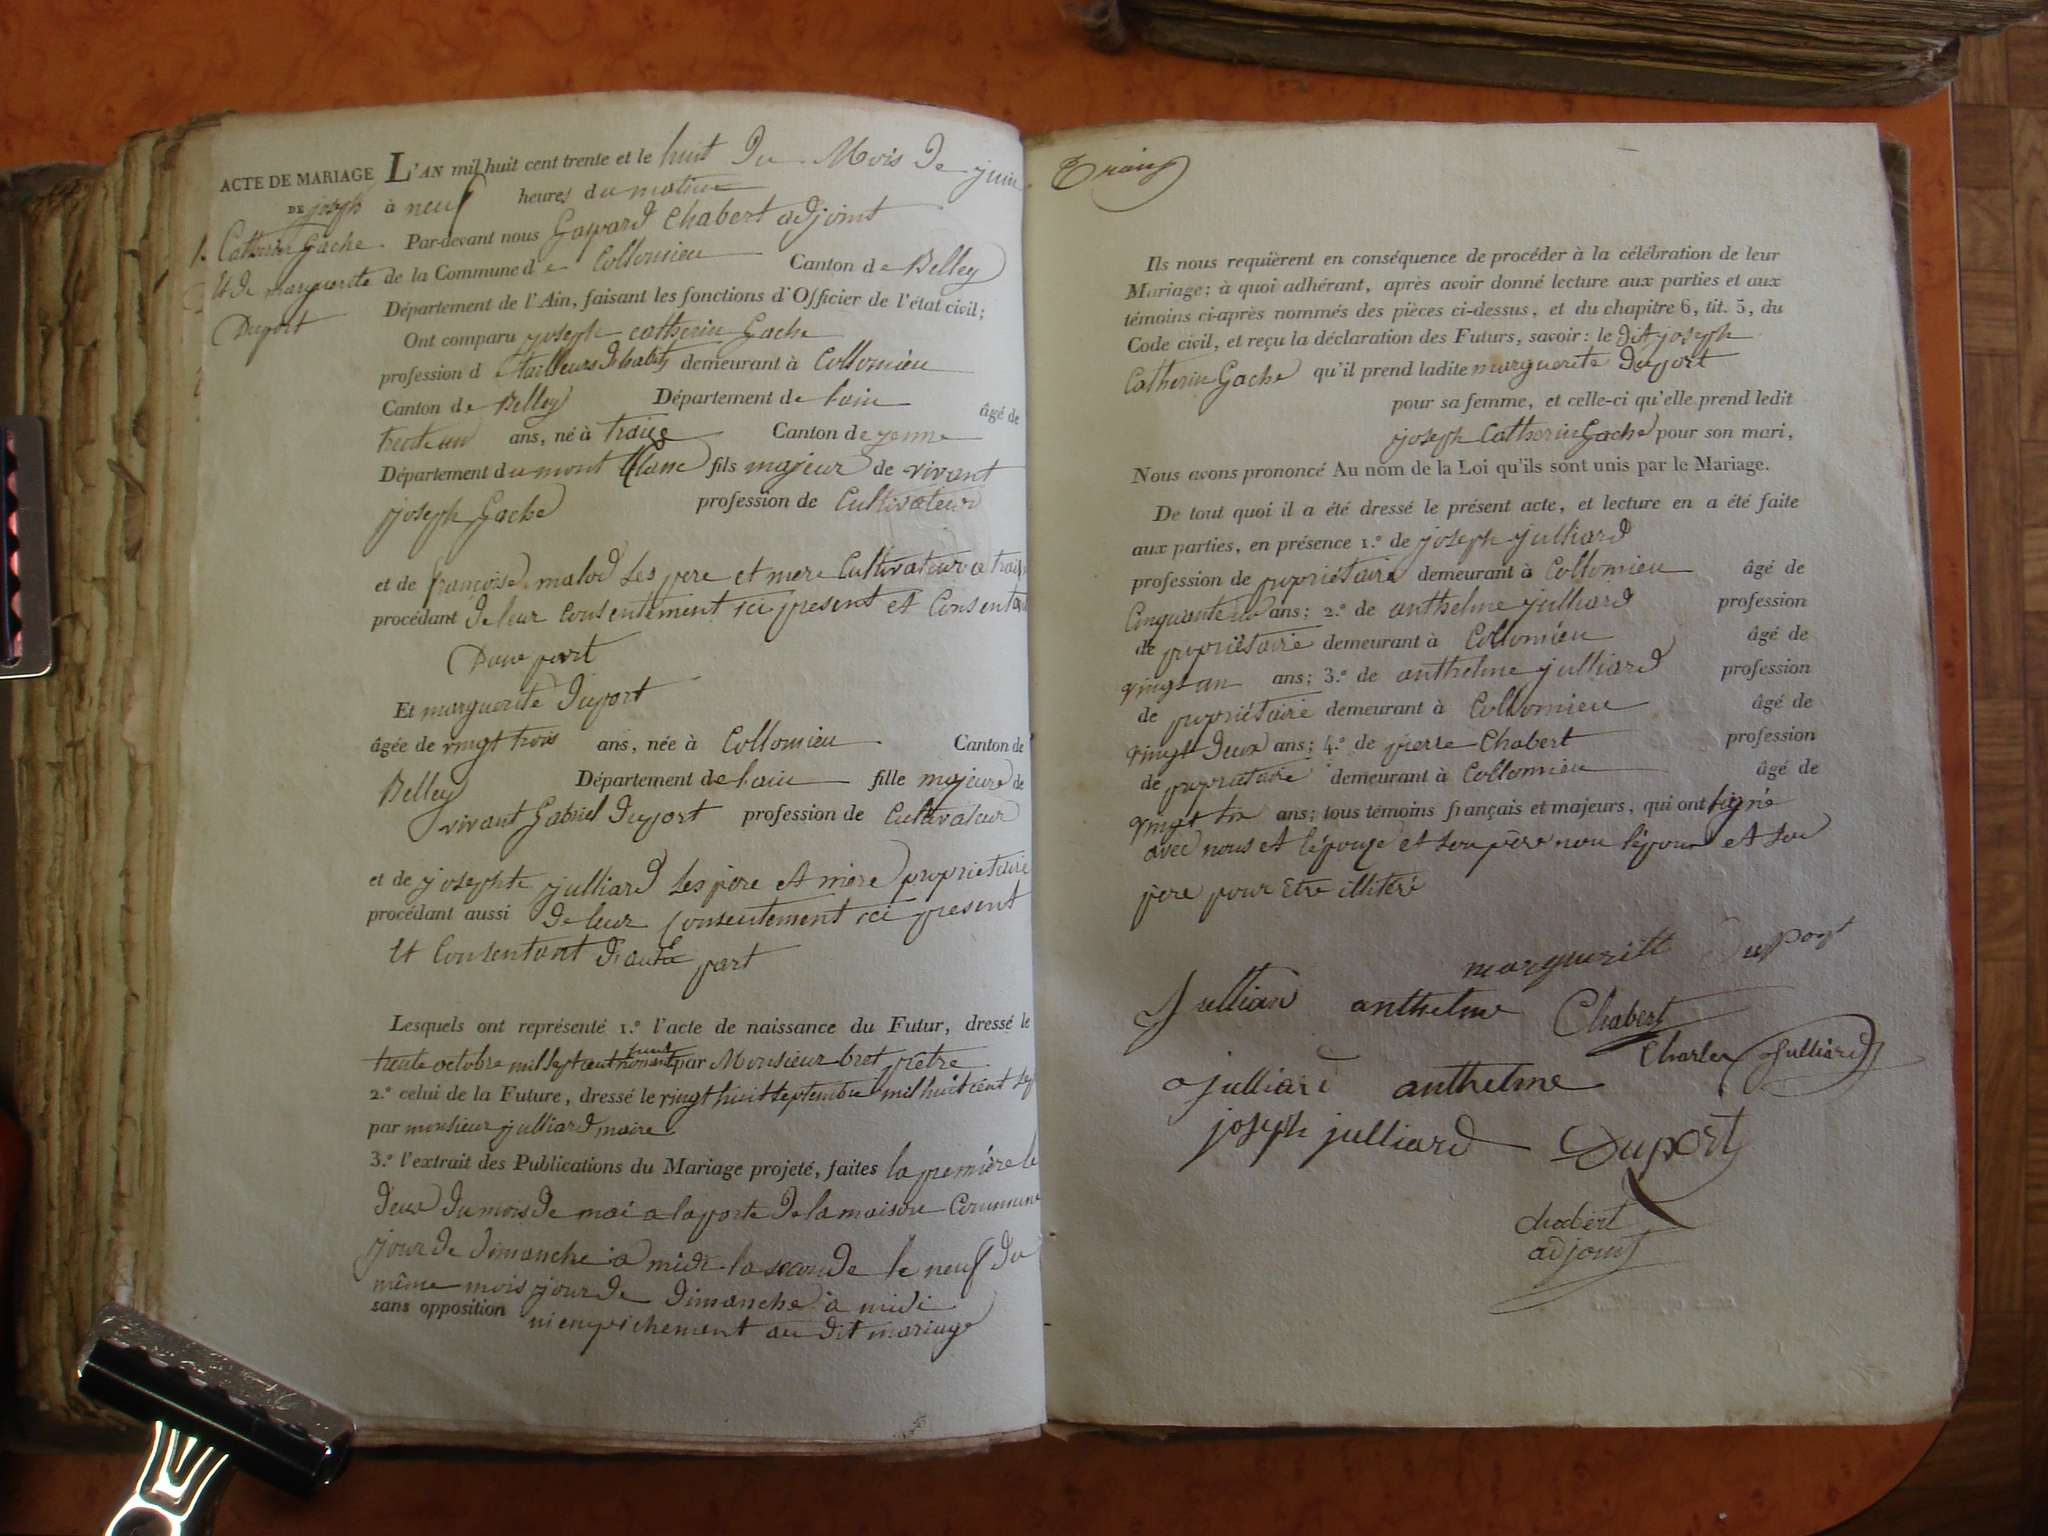 ACTE DE MARIAGE
DE joseph
Catherin Gache
et de marguerite
Duport
L'AN mil huit cent trente et le huit du Mois de juin
à neuf heures du matin
Par-devant nous Gaspard Chabert adjoint
de la Commune de Collomieu Canton de Belley
Département de l'Ain, faisant les fonctions d'Officier de l'état civil;
Ont comparu joseph catherin Gache
profession d tailleurs d'habits demeurant à Collomieu
Canton de Belley Département de lain âgé de
trente un ans, né à traise Canton de yenne
Département du mont Blanc fils majeur de vivant
joseph Gache profession de Cultivateur
et de françoise malod ses pere et mere Cultivateur a traise
procédant de leur consentement ici present et Consentant
Dune part
Et marguerite Duport
âgée de vingt trois ans, née à Collomieu Canton de
Belley Département de lain fille majeure de
vivant Gabriel Duport profession de Cultivateur
et de josephte julliard ses père et mère propriétaire
procédant aussi de leur Consentement ici present
et Consentant D'autre part
Lesquels ont représenté 1.º l'acte de naissance du Futur, dressé le
trente octobre mil sept cent nonante huit par Monsieur bret prêtre
2.º celui de la Future, dressé le vingt huit septembre mil huit cent sept
par monsieur julliard maire
3.º l'extrait des Publications du Mariage projeté, faites la première le
deux du mois de mai a la porte de la maison Commune
jour de dimanche à midi la seconde le neuf du
même mois jour de dimanche à midi
sans opposition ni empichement au dit mariage
Ils nous requièrent en conséquence de procéder à la célébration de leur
Mariage; à quoi adhérant, après avoir donné lecture aux parties et aux
témoins ci-après nommés des pièces ci-dessus, et du chapitre 6, tit. 5, du
Code civil, et reçu la déclaration des Futurs, savoir: le dit joseph
Catherin Gache qu'il prend ladite marguerite Duport
pour sa femme, et celle-ci qu'elle prend ledit
joseph Catherin Gache pour son mari,
Nous avons prononcé Au nom de la Loi qu'ils sont unis par le Mariage.
De tout quoi il a été dressé le présent acte, et lecture en a été faite
aux parties, en présence 1.º de joseph julliard
profession de propriétaire demeurant à Collomieu âgé de
Cinquante ans; 2.º de anthelme julliard profession
de propriétaire demeurant à Collomieu âgé de
vingt un ans; 3.º de anthelme julliard profession
de propriétaire demeurant à Collomieu âgé de
vingt deux ans; 4.º de pierre Chabert profession
de propriataire demeurant à Collomieu âgé de
vingt six ans; tous témoins français et majeurs, qui ont signé
avec nous et l'épouse et son père non l'époux et son
père pour être illitéré
marguerite Duport
Jullian anthelme Chabert
Charles Julliard
julliard anthelme
joseph julliard Duport
chabert
adjoint